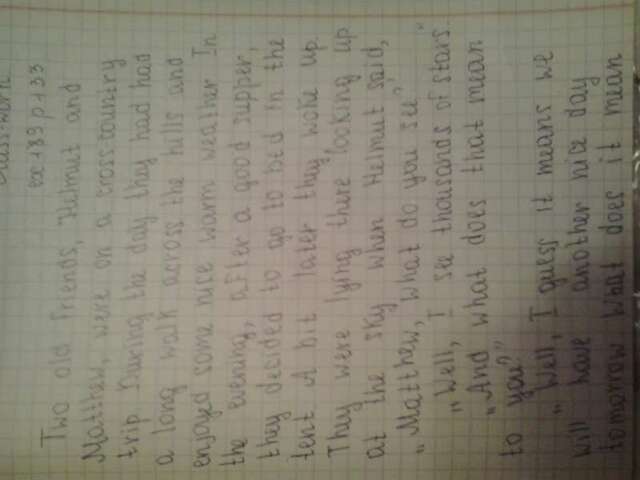 Class-work
ex 189 p 133
Two old friends, Helmut and
Matthew, were on a cross-country
trip. During the day they had had
a long walk across the hills and
enjoyed some nice warm weather In
the evening, after a good supper,
they decided to go to bed in the
tent A bit later they woke up.
They were lying there looking up
at the sky when Helmut said,
"Matthew, what do you see"
"Well, I see thousands of stars."
"And what does that mean
to you?"
"Well, I guess it means we
will have another nice day
tomorrow What does it mean